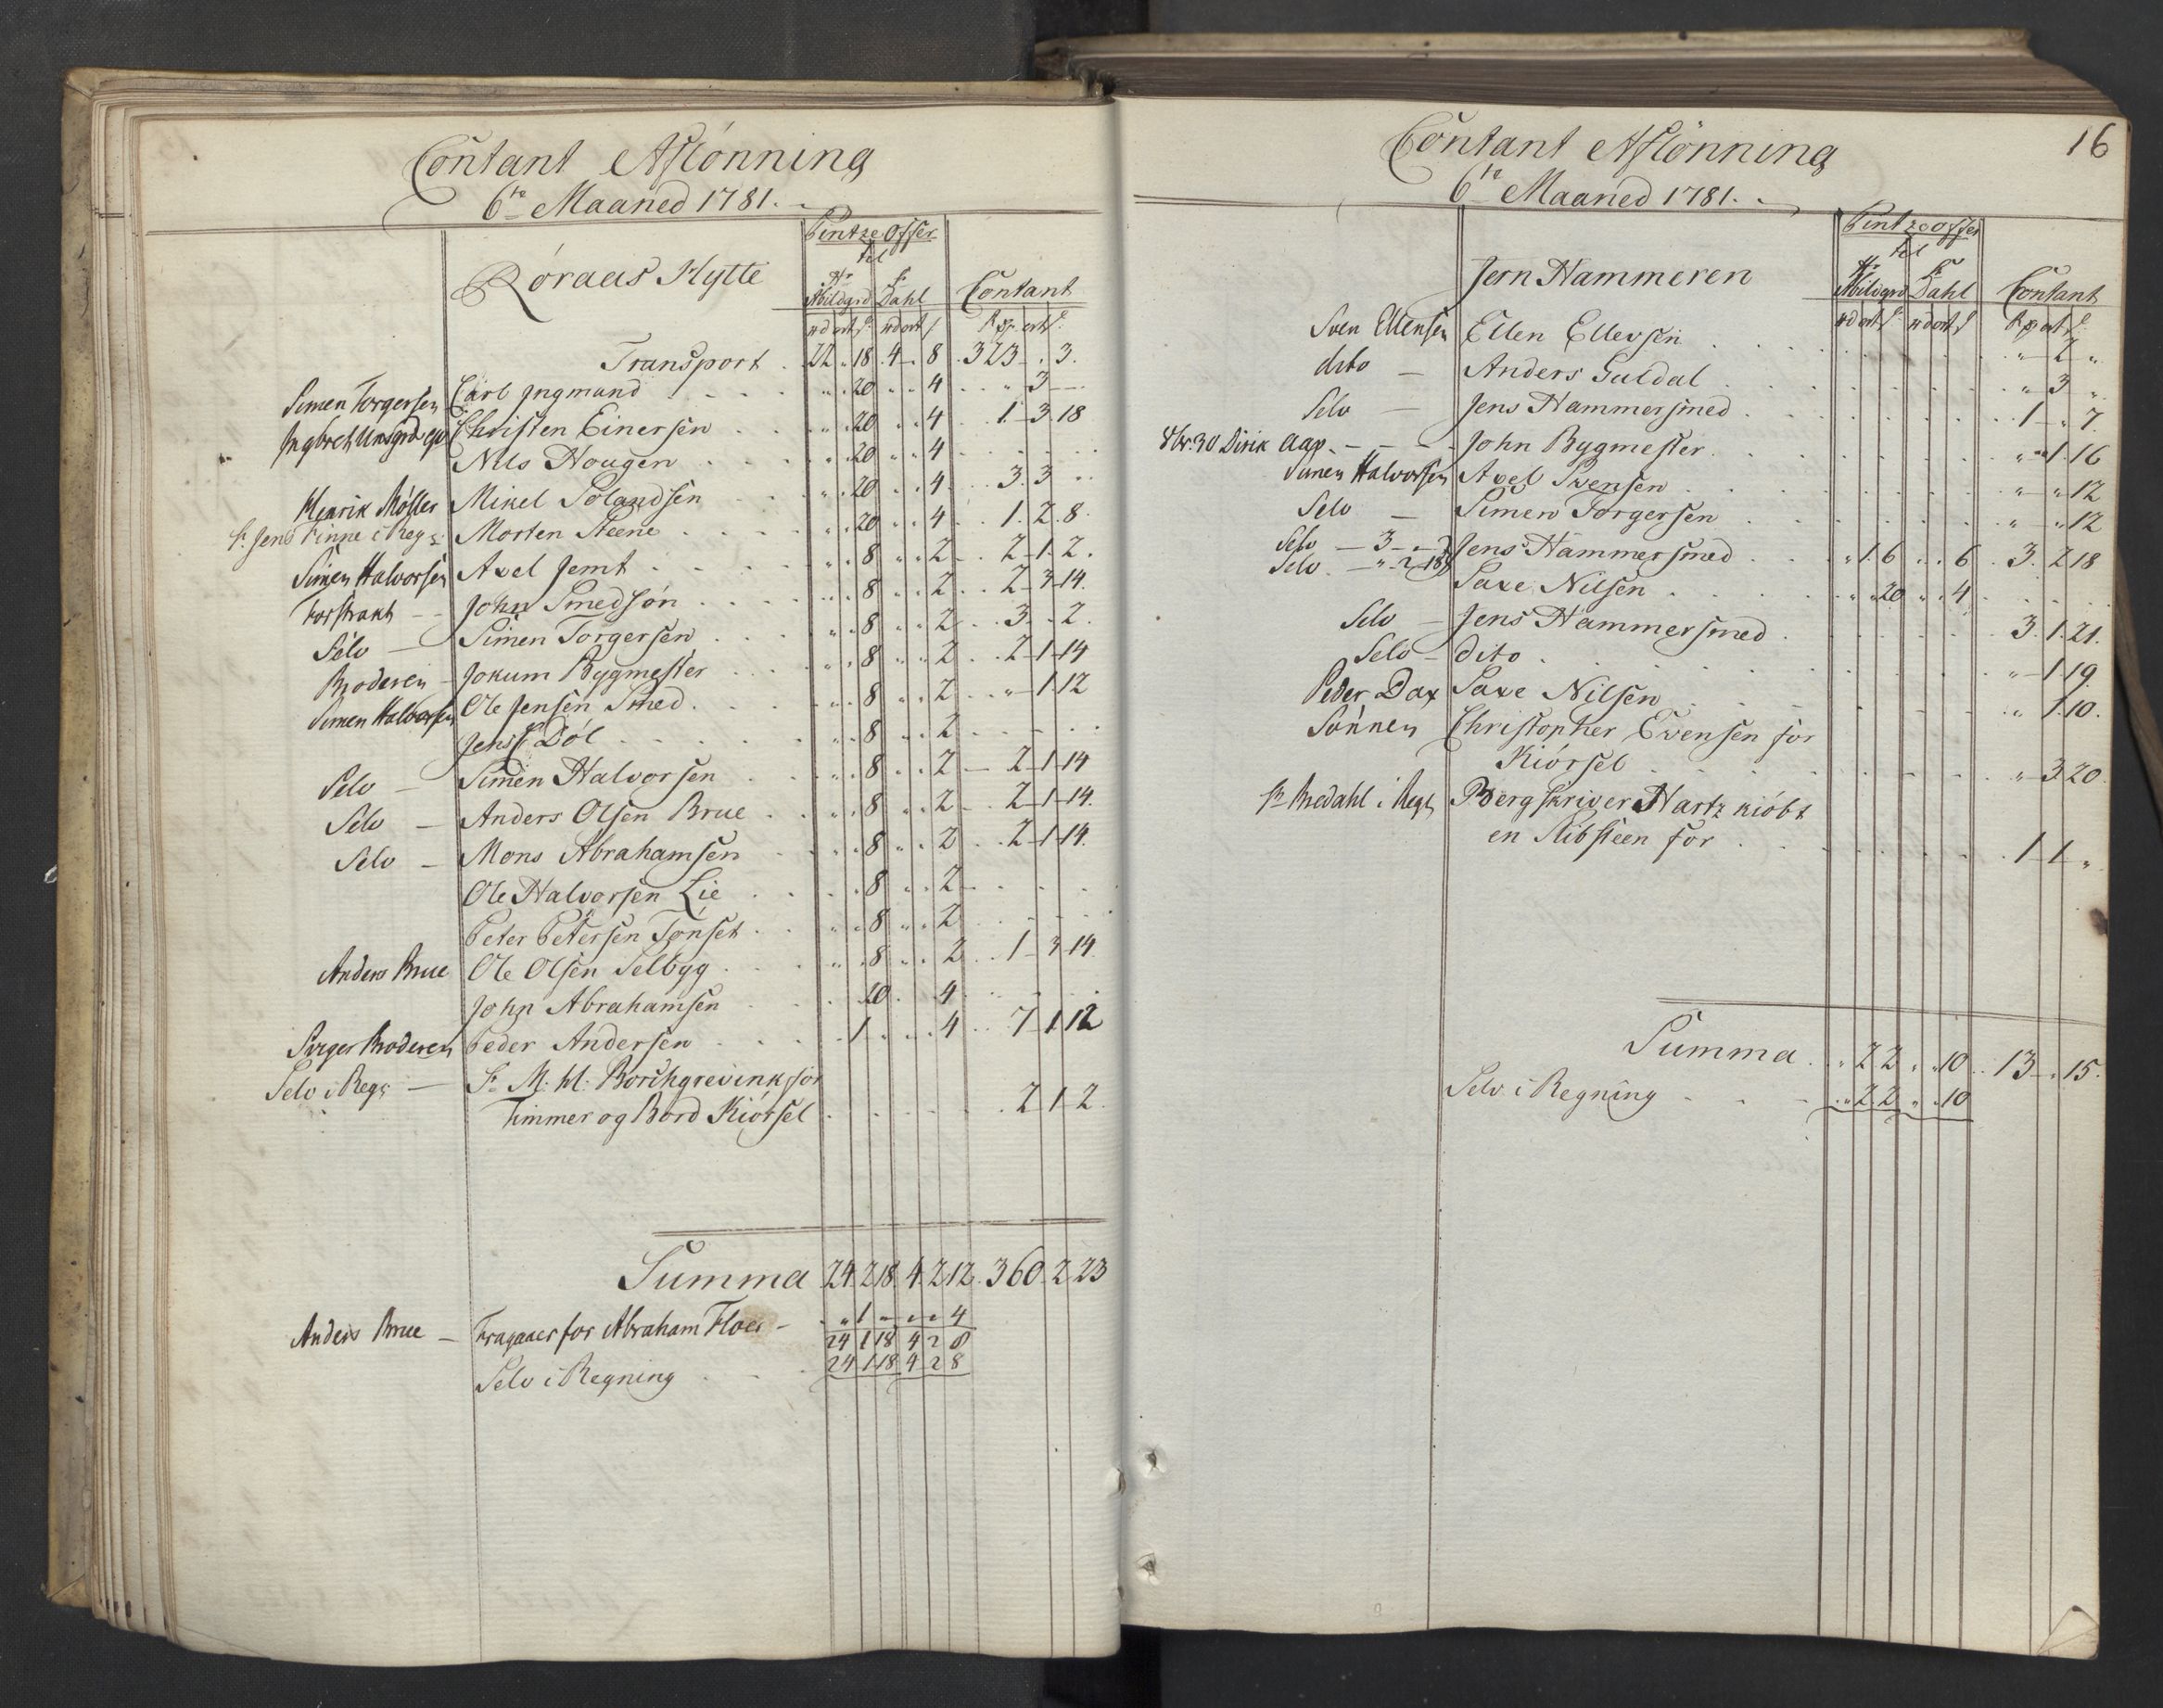 Contant Aflönning
6te Maaned 1781.
Pintze Offer
til
Röraas Hytte
Hr Abildgrd Hr Dahl Contant
rd ort s rd ort s Rdr ort s
Transport 22 " 18 4 " 8 323 " 3
Simen Torgersen Carl Ingmand " " 20 " " 4 " 3 "
Christen Einersen " " 20 " " 4 1 3 18
Nils Hougen " " 20 " " 4
Henrik Möller Mikel Solandsen " " 20 " " 4 3 3 "
Sr Jens Finne i Regn Morten Steene " " 20 " " 4 1 2 8
Simen Halvorsen Axel Jemt " " 8 " " 2 2 1 2
Forstrakt John Smedsøn " " 8 " " 2 2 3 14
Selv Simen Torgersen " " 8 " " 2 3 " 2
Broderen Jokum Bygmester " " 8 " " 2 2 1 14
Simen Halvorsen Ole Jensen Smed " " 8 " " 2 " 1 12
Jens Döl " " 8 " " 2
Selv Simen Halvorsen " " 8 " " 2 2 1 14
Selv Anders Olsen Brue " " 8 " " 2 2 1 14
Selv Mons Abrahamsen " " 8 " " 2 2 1 14
Ole Halvorsen Lie " " 8 " " 2
Peter Petersen Tönset " " 8 " " 2
Anders Brue Ole Olsen Selbyg " " 8 " " 2 1 3 14
John Abrahamsen 20 4
Broderen Peder Andersen 1 4 7 1 12
Selv i Regn Sr M. Hl: Borchgrevink for
Timmer og Bord Kiörsel 2 1 2
Summa 24 2 18 4 2 12 360 2 23
Anders Brue Fragaaer for Abraham Floer " 1 " " " 4
24 1 18 4 2 8
Selv i Regning 24 1 18 4 2 8
16
Contant Aflönning
6te Maaned 1781.
Pintze Offer
til
Jern Hammeren
Hr Abildgrd Hr Dahl Contant
rd ort s rd ort s Rdr ort s
Sven Ellensen Ellen Ellevsen " 2 "
dito Anders Guldal " 3 "
Selv Jens Hammersmed 1 " 7
8br: 30 Dirik Aag John Bygmester " 1 16
Simen Halvorsen Axel Svensen " " 12
Selv Simen Torgersen " " 12
Selv 3 Jens Hammersmed " 1 6 " " 6 3 2 18
Selv " 2 18
Saxe Nilsen " " 20 " " 4
Selv Jens Hammersmed 3 1 21
Selv dito " 1 19
Peder Dax Saxe Nilsen " 1 10
Sönnen Christopher Evensen for
Kiörsel " 3 20
Sr Bredahl i Regn Bergskriver Hartz kiöbt
en Slibsteen for 1 1 "
Summa " 2 2 " " 10 13 " 15
Selv i Regning " 2 2 " " 10